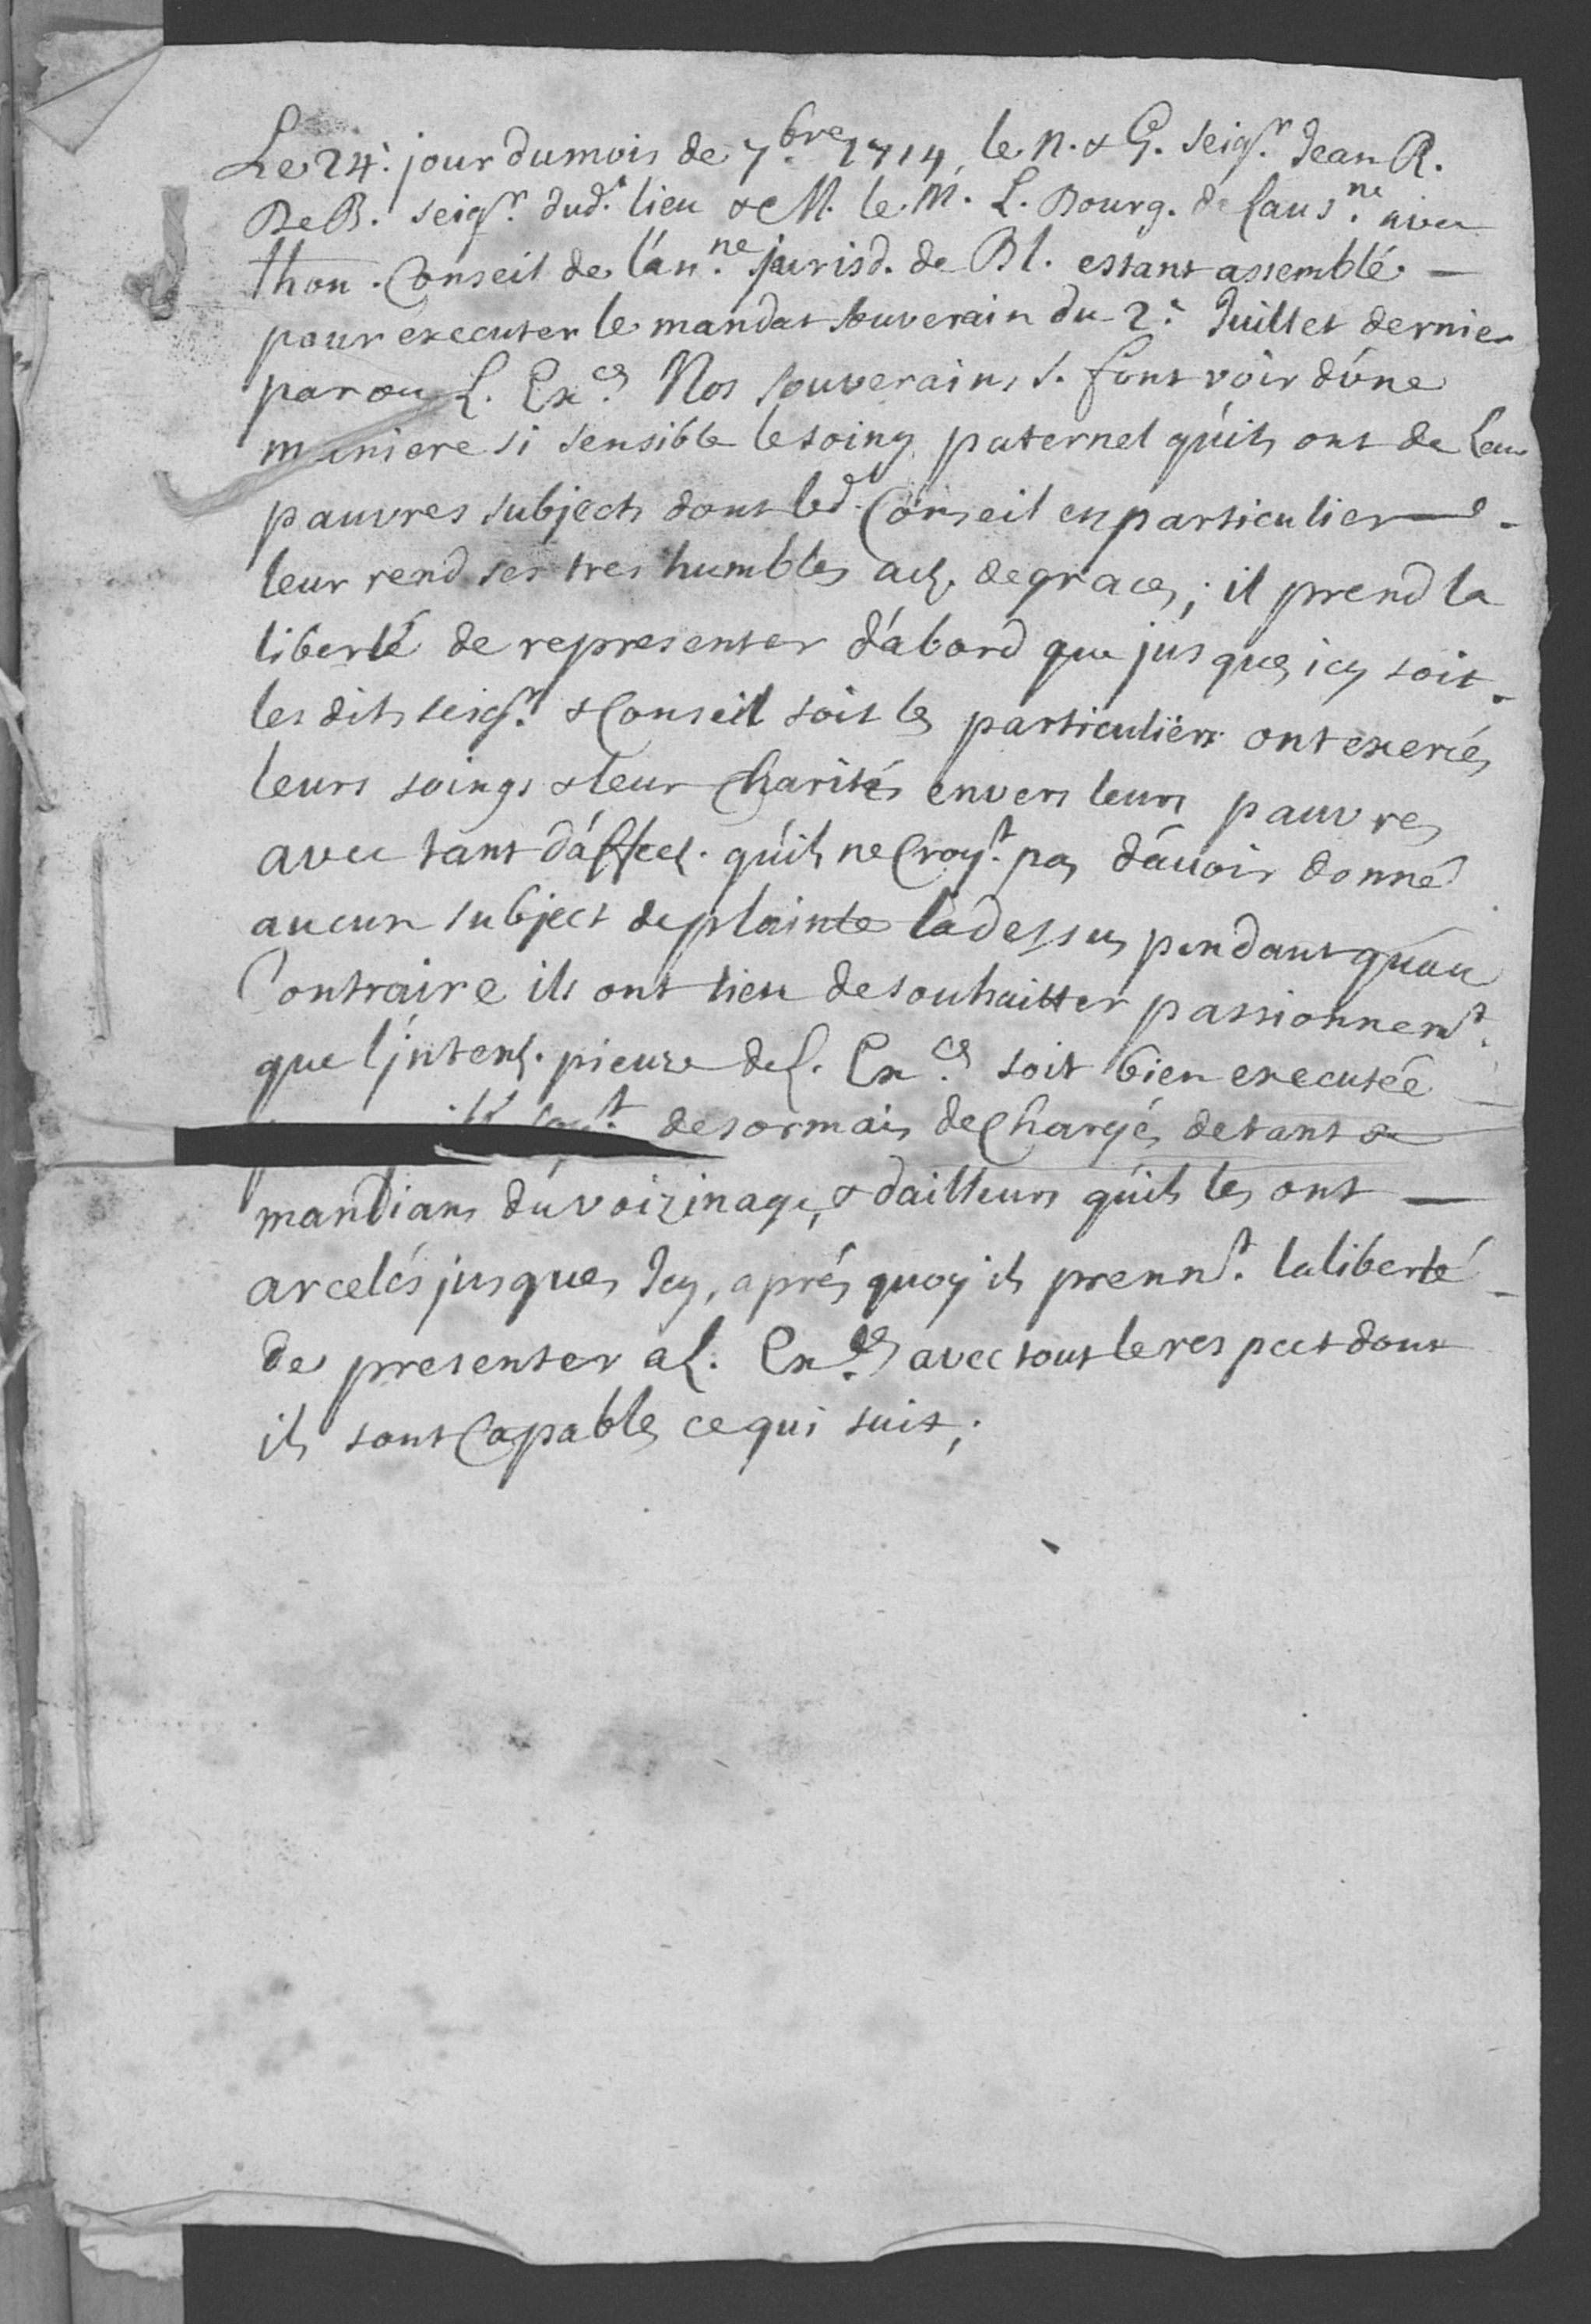 Le 24.e jour du mois de 7.bre 1714, le N. & G. seig.r Jean R.
De B. seig.r dud.t lieu & M. le M. L. Bourg. de Laus.ne avec
lhon. Conseil de l'an.ne jurisd. de Bl. estant assemblé —
pour executer le mandat souverain du 2.e Juillet dernier
par ou L. Ex.ces Nos souverains S. font voir d'une
maniere si sensible le soing paternel qu'ils ont de leurs
pauvres subjects dont led.t Conseil en particulier —
leur rend ses tres humbles act. de graces; il prend la
liberté de representer d'abord que jusques icy soit
les dits seig.r & Conseil soit les particuliers ont exercés
leurs soings & leur charités envers leurs pauvres
avec tant d'affect. qu'ils ne croy.t pas d'avoir donné
aucun subject de plainte ladessus, pendant qu'au
Contraire ils ont lieu de souhaitter passionnem.t
que l'intent. pieuse de L. Ex.ces soit bien executée —
desormais dechargés de tant de
mandians du voizinage, & dailleurs qu'ils les ont —
arcelés jusques Icy, aprés quoy ils prenn.t la liberté
de presenter a L. Ex.ces avec tout le respect dont
ils sont Capables ce qui suit;